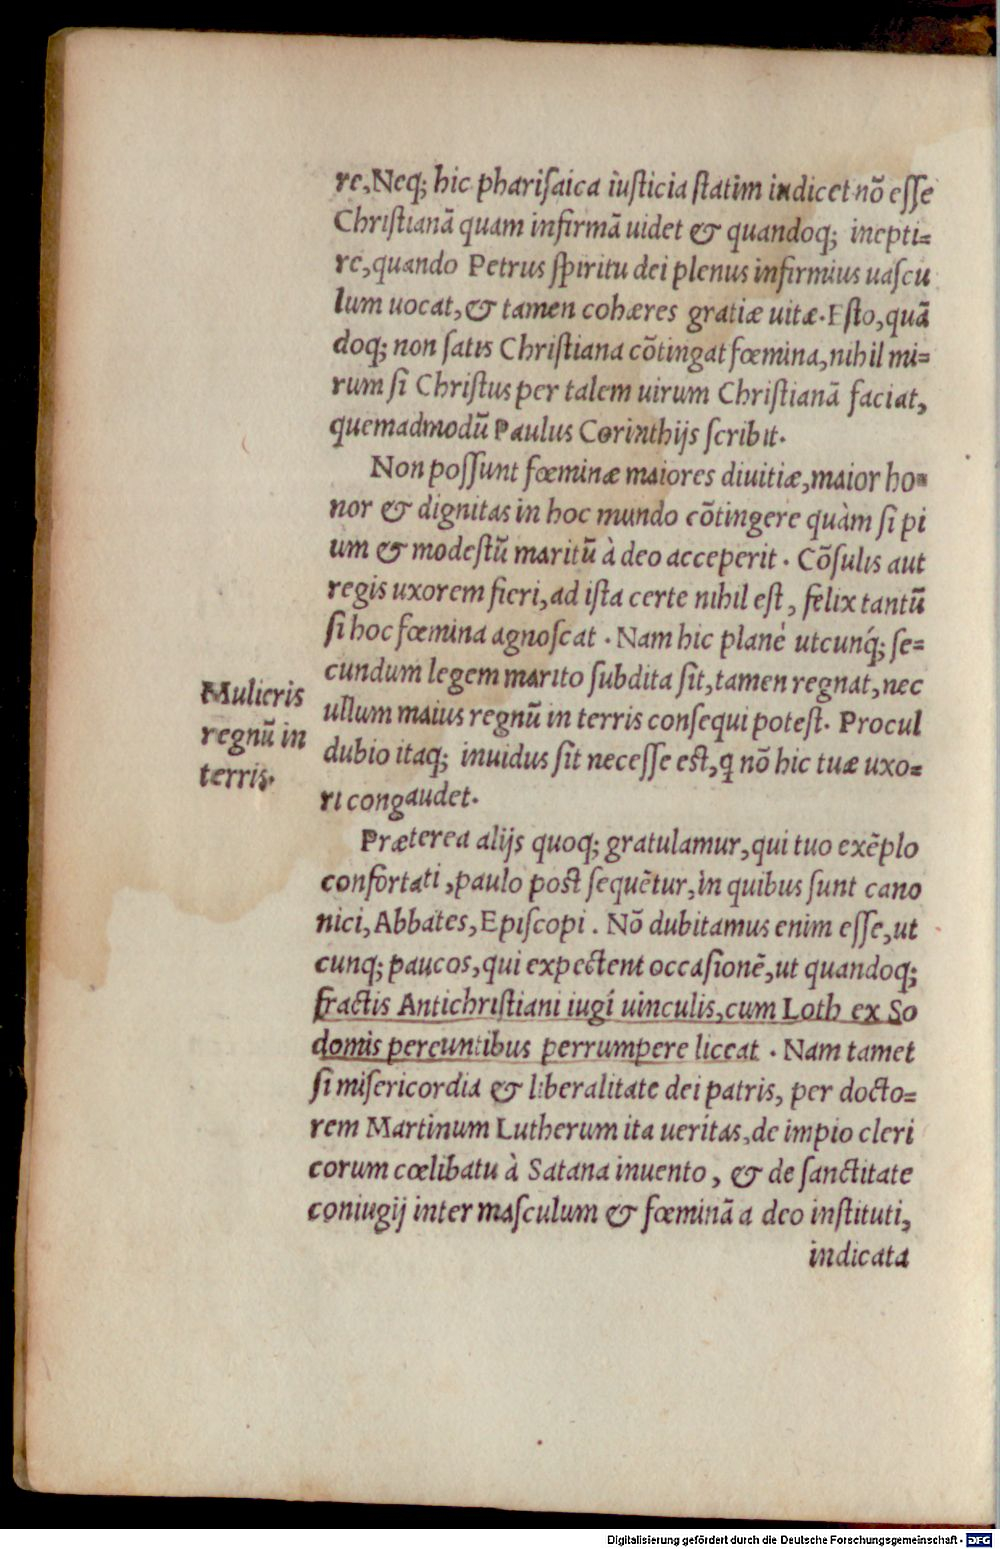 re,Neq; hic phariſaica iuſticia ſtatim indicet nõ eſſe
Chriſtianã quam infirmã uidet & quandoq; inepti=
re,quando Petrus ſpiritu dei plenus infirmius uaſcu
lum uocat,& tamen cohæres gratiæ uitæ.Eſto,quã
doq; non ſatis Chriſtiana cõtingat fœmina,nihil mi=
rum ſi Chriſtus per talem uirum Chriſtianã faciat,
quemadmodũ Paulus Corinthijs ſcribit.
Non poſſunt fœminæ maiores diuitiæ,maior ho=
nor & dignitas in hoc mundo cõtingere quàm ſi pi
um & modeſtũ maritũ à deo acceperit . Cõſulis aut
regis uxorem fieri,ad iſta certe nihil eſt, felix tantũ
ſi hoc fœmina agnoſcat . Nam hic planè utcunq́; ſe=
cundum legem marito ſubdita ſit,tamen regnat,nec
ullum maius regnũ in terris conſequi poteſt. Procul
dubio itaq; inuidus ſit neceſſe eſt,q nõ hic tuæ uxo=
ri congaudet.
Mulieris
regnũ in
terris.
Præterea alijs quoq; gratulamur,qui tuo exẽplo
confortati ,paulo poſt ſequẽtur,in quibus ſunt cano
nici,Abbates,Epiſcopi . Nõ dubitamus enim eſſe,ut
cunq; paucos,qui expectent occaſionẽ,ut quandoq;
fractis Antichriſtiani iugí uinculis,cum Loth ex So
domis pereuntibus perrumpere liceat . Nam tamet
ſi miſericordia & liberalitate dei patris, per docto=
rem Martinum Lutherum ita ueritas,de impio cleri
corum cœlibatu à Satana inuento, & de ſanctitate
coniugij inter maſculum & fœminã a deo inſtituti,
indicata
Digitalisierung gefördert durch die Deutsche Forschungsgemeinschaft - DFG